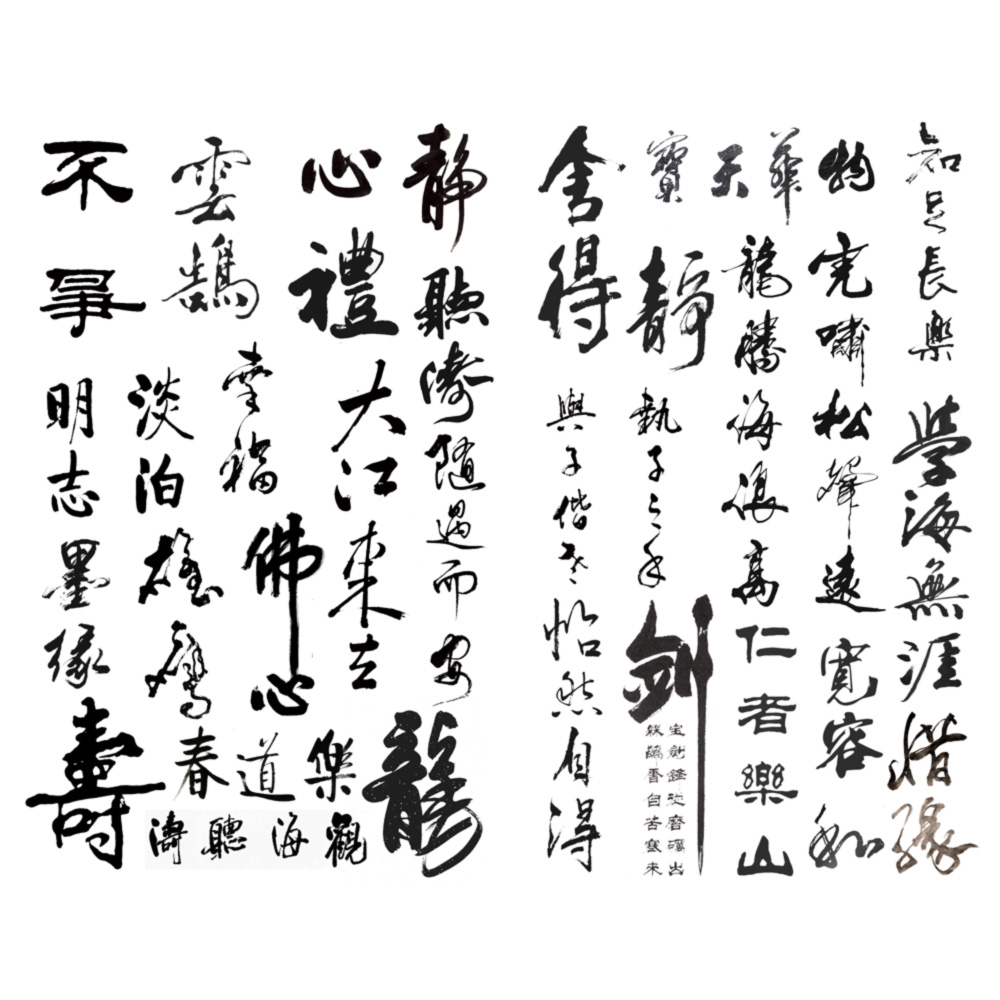 知足長樂
學海無涯
惜缘
物華天寳
虎嘯松聲遠
寬容
和
龍騰海浪高
仁者樂山
靜
執子之手
與子偕老
劍
宝劍鋒从磨礪出
梅香自苦寒来
舍得
怡然自得
靜聽濤
随遇而安
龍
心
禮
大江東去
佛心
樂
道
春
觀海聽濤
雲鶴
幸福
淡泊
明志
雄鷹
不爭
墨缘
壽